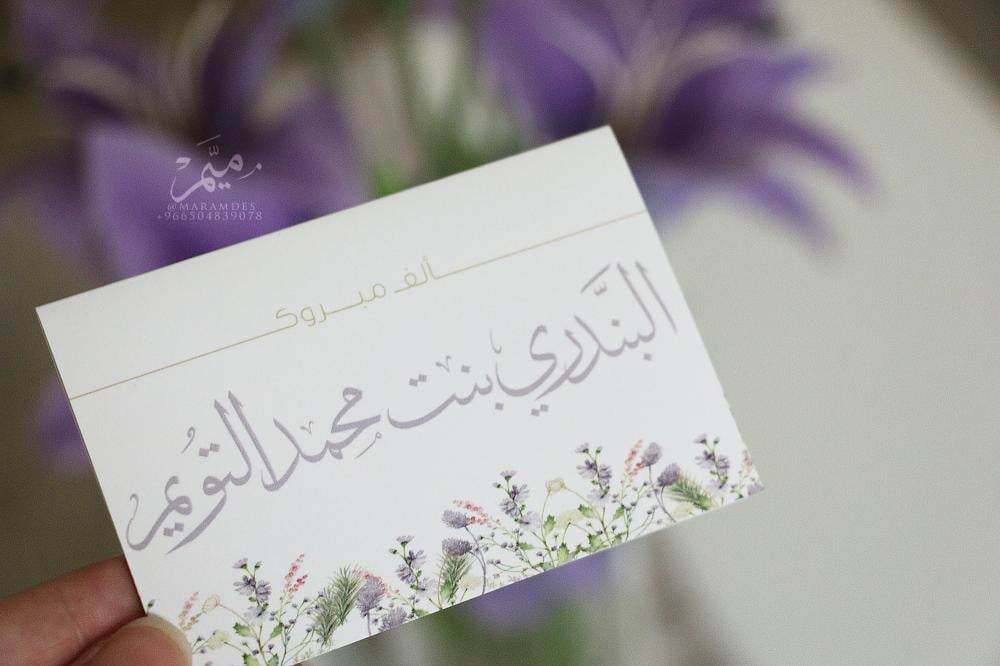 ميم
@MARAMDES
+966504839078
ألف مبروك
البندري بنت محمد التويم